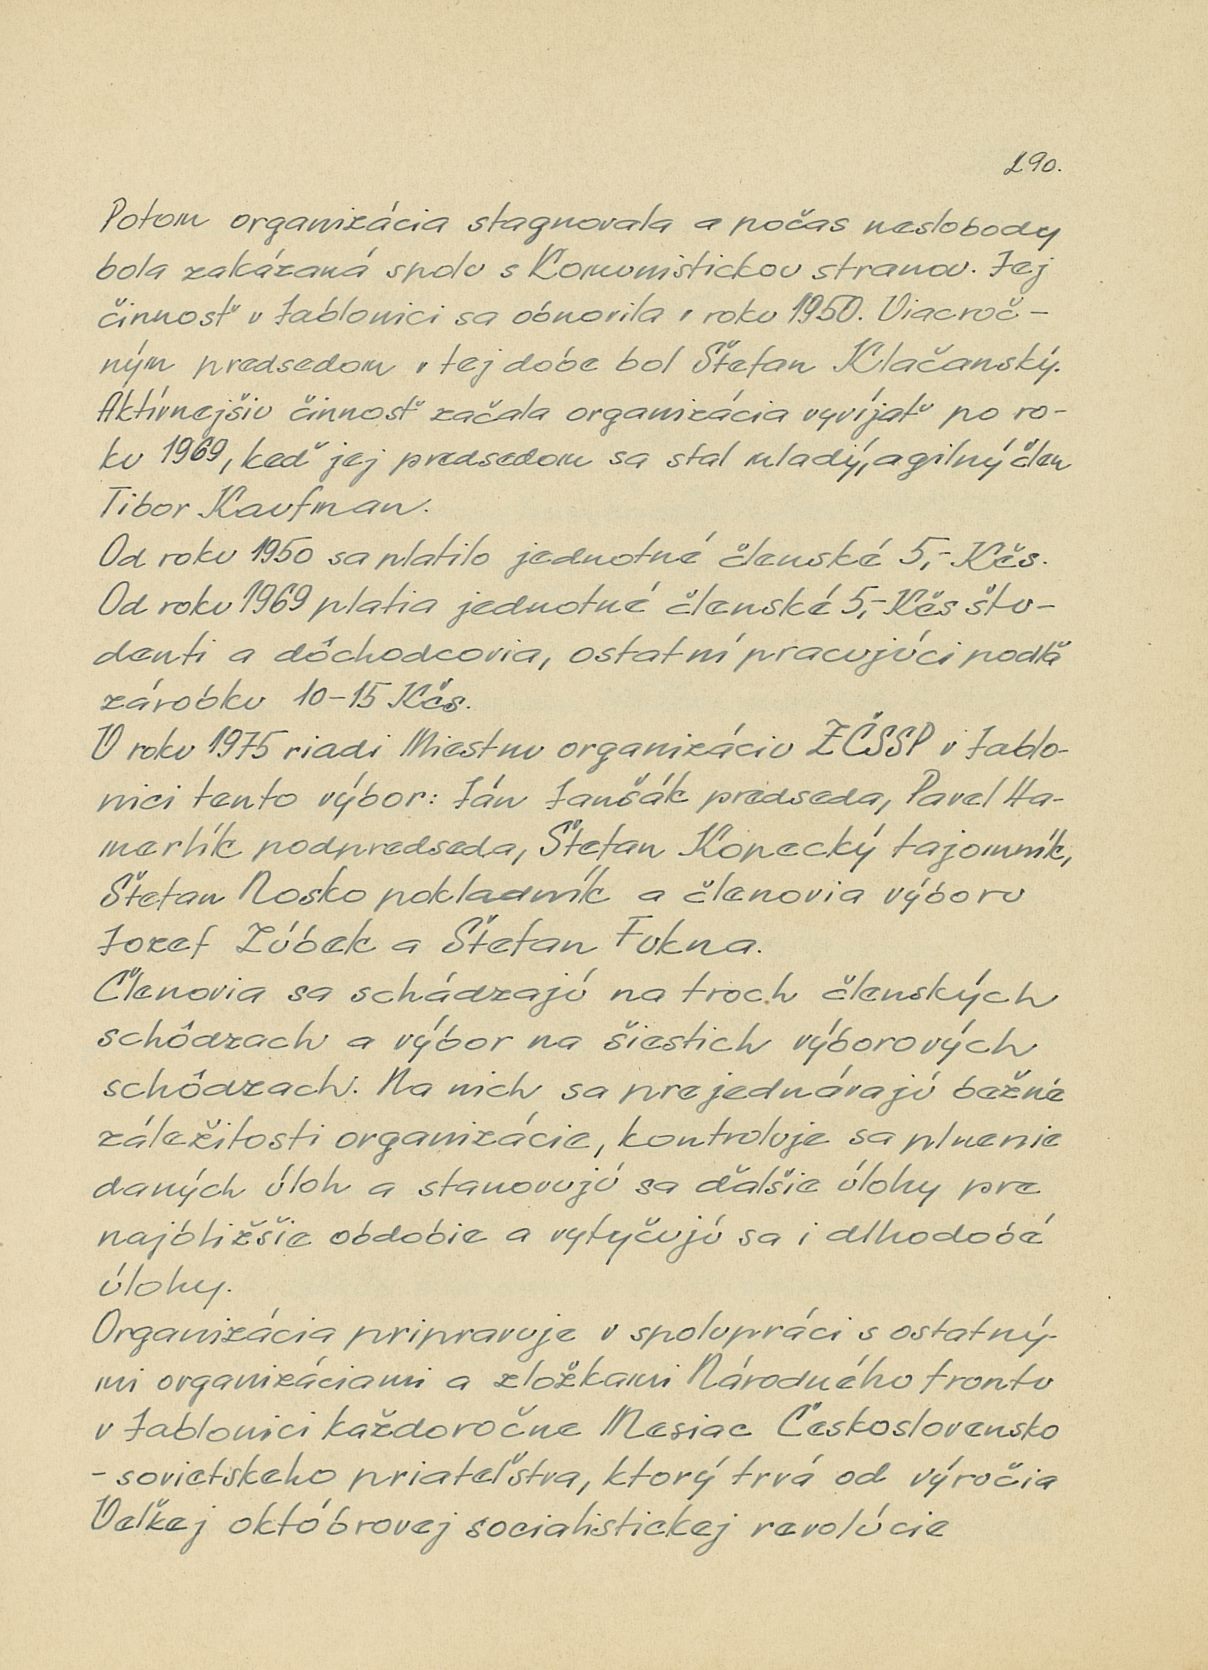 290.
Potom organizácia stagnovala a počas neslobody
bola zakázaná spolu s Komunistickou stranou. Jej
činnosť v Jablonici sa obnovila v roku 1950. Viacroč-
ným predsedom v tej dobe bol Štefan Klačanský.
Aktívnejšiu činnosť začala organizácia vyvíjať po ro-
ku 1969, keď jej predsedom sa stal mladý, agilný člen
Tibor Kaufman.
Od roku 1950 sa platilo jednotné členské 5,- Kčs.
Od roku 1969 platia jednotné členské 5,- Kčs štu-
denti a dôchodcovia, ostatní pracujúci podľa
zárobku 10-15 Kčs.
V roku 1975 riadi Miestnu organizáciu ZČSSP v Jablo-
nici tento výbor: Ján Janšák predseda, Pavel Ha-
merlík podpredseda, Štefan Kopecký tajomník,
Štefan Nosko pokladník a členovia výboru
Jozef Zúbek a Štefan Fukna.
Členovia sa schádzajú na troch členských
schôdzach a výbor na šiestich výborových
schôdzach. Na nich sa prejednávajú bežné
záležitosti organizácie, kontroluje sa plnenie
daných úloh a stanovujú sa ďalšie úlohy pre
najbližšie obdobie a vytyčujú sa i dlhodobé
úlohy.
Organizácia pripravuje v spolupráci s ostatný-
mi organizáciami a zložkami Národného frontu
v Jablonici každoročne Mesiac Československo
- sovietskeho priateľstva, ktorý trvá od výročia
Veľkej októbrovej socialistickej revolúcie